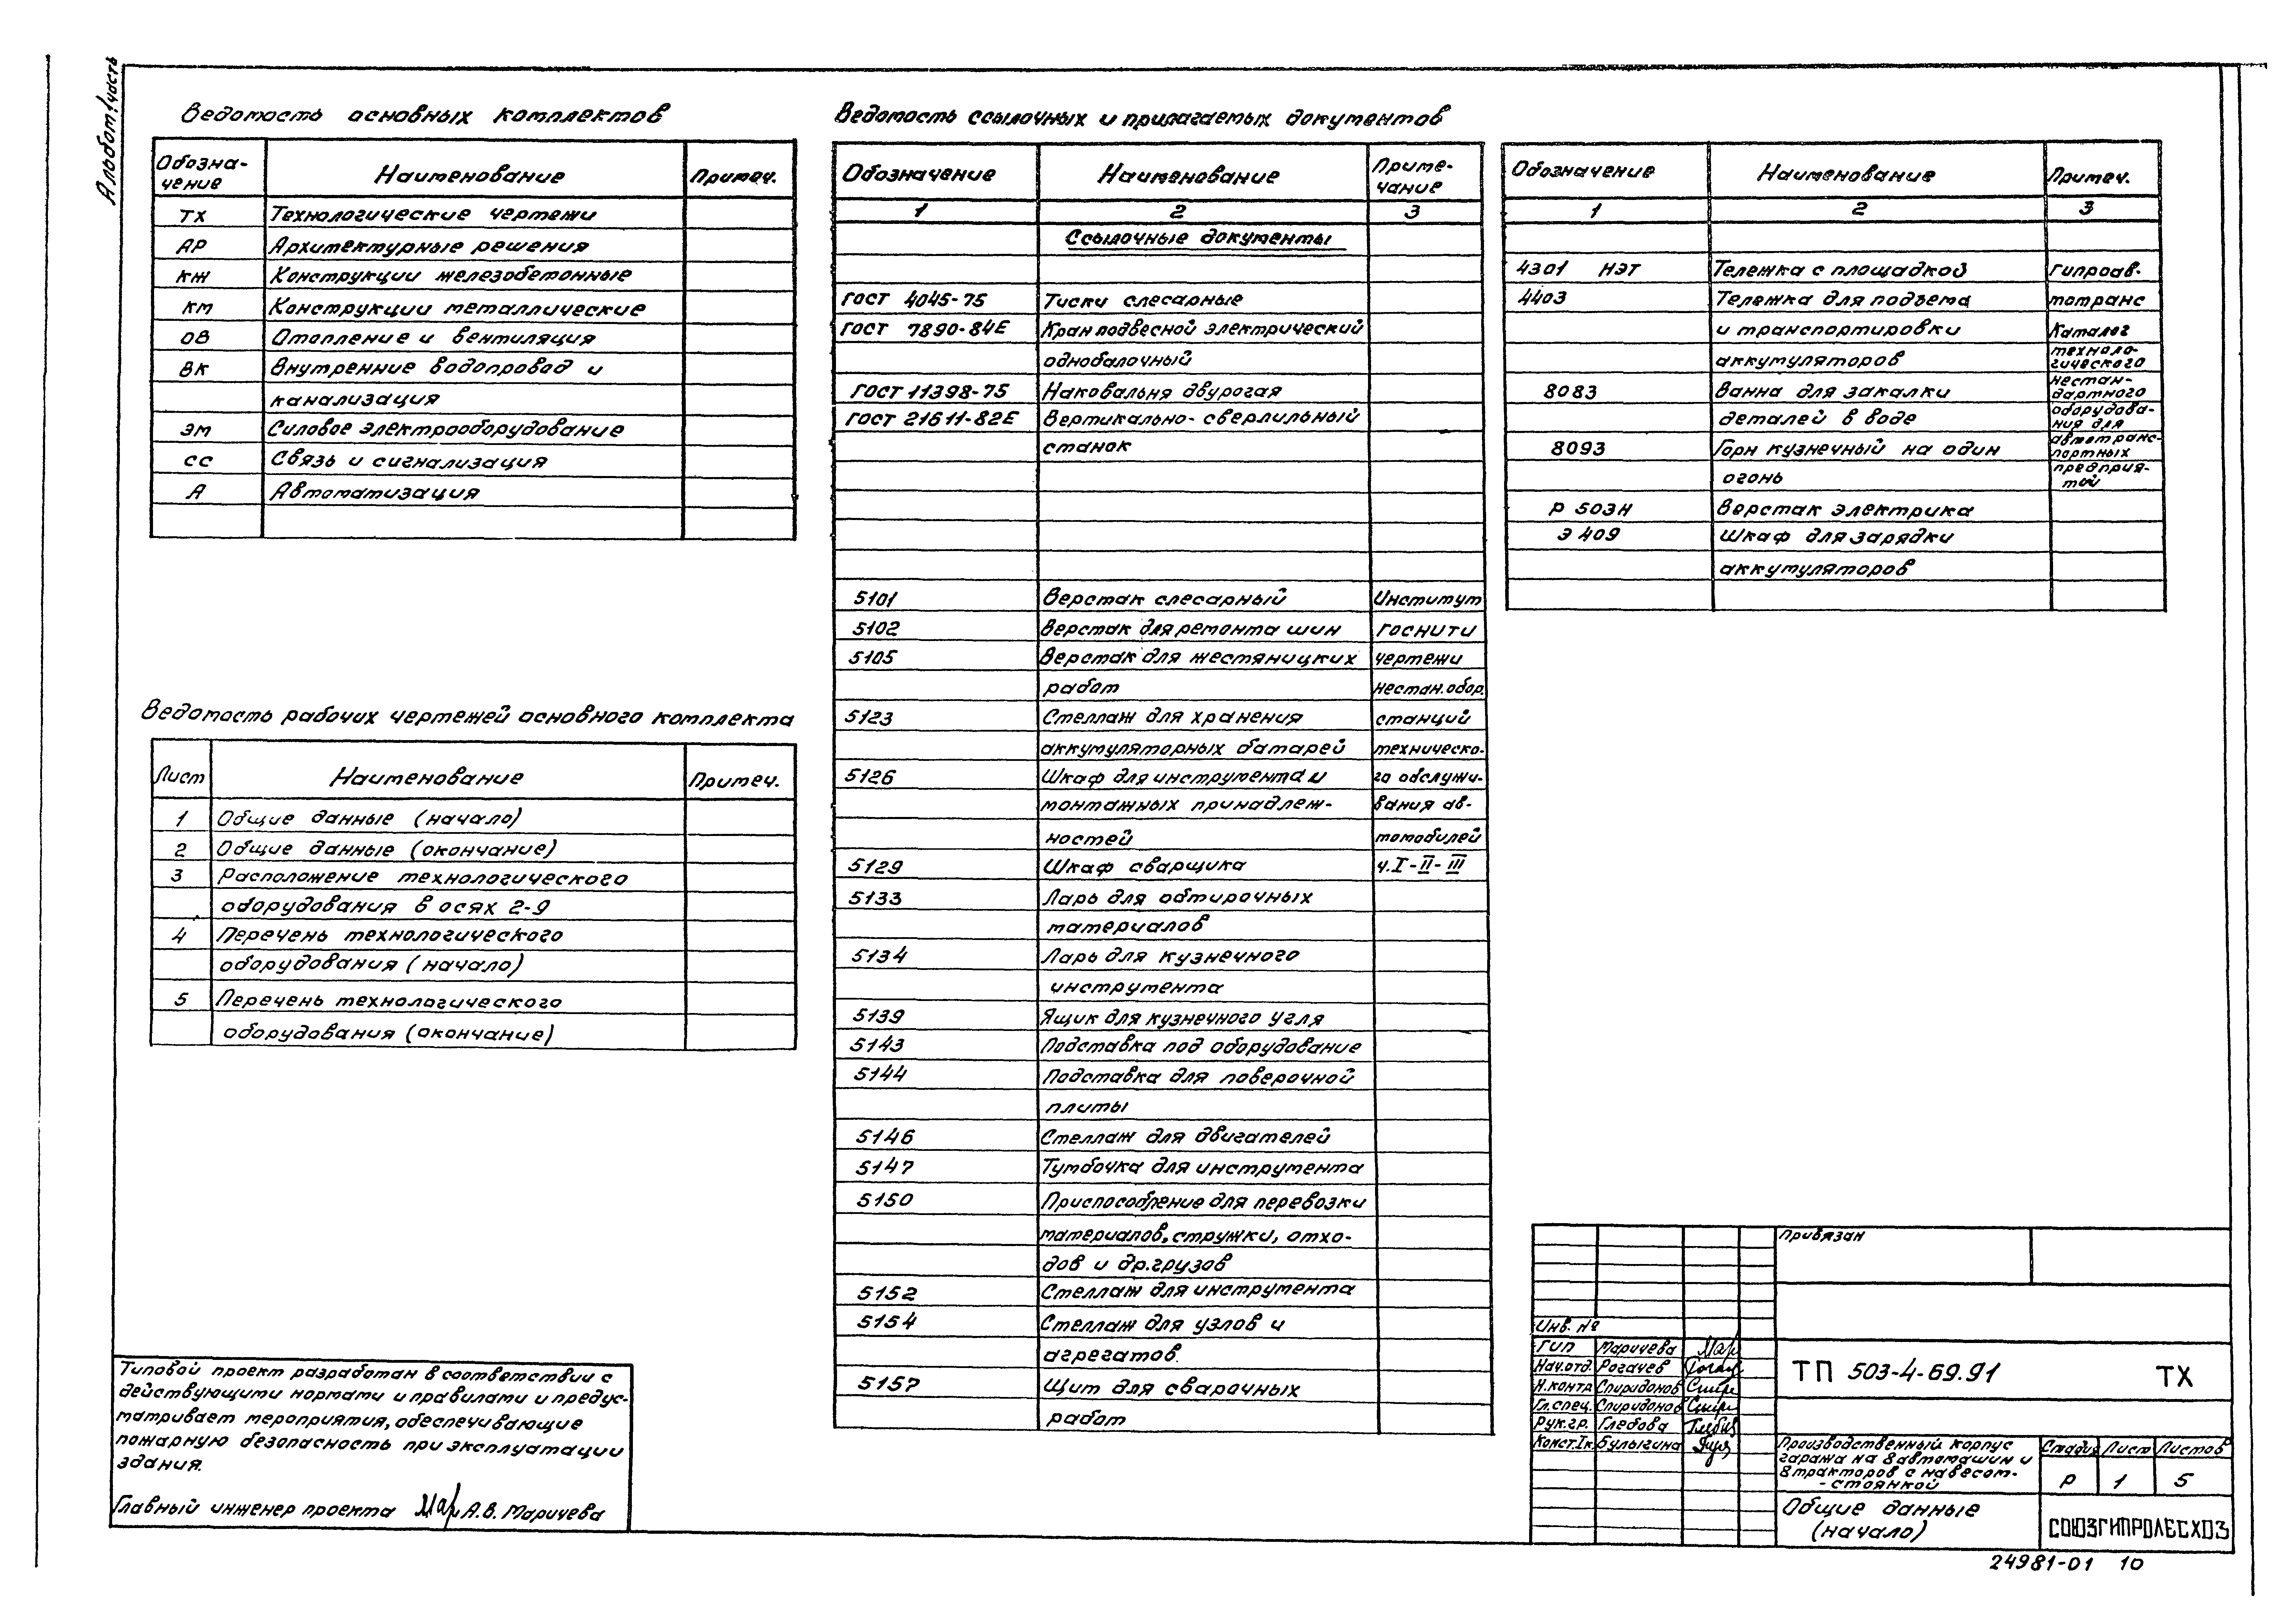 Альбом 1 часть
Ведомость основных комплектов
Обозна-
чение
Наименование
Примеч.
ТХ Технологические чертежи
АР Архитектурные решения
КЖ Конструкции железобетонные
КМ Конструкции металлические
ОВ Отопление и вентиляция
ВК Внутренние водопровод и
канализация
ЭМ Силовое электрооборудование
СС Связь и сигнализация
А Автоматизация
Ведомость рабочих чертежей основного комплекта
Лист Наименование Примеч.
1 Общие данные (начало)
2 Общие данные (окончание)
3 Расположение технологического
оборудования в осях 2-9
4 Перечень технологического
оборудования (начало)
5 Перечень технологического
оборудования (окончание)
Типовой проект разработан в соответствии с
действующими нормами и правилами и предус-
матривает мероприятия, обеспечивающие
пожарную безопасность при эксплуатации
здания.
Главный инженер проекта Мар А.В. Маричева
Ведомость ссылочных и прилагаемых документов
Обозначение Наименование Приме-
чание
1 2 3
Ссылочные документы
ГОСТ 4045-75 Тиски слесарные
ГОСТ 7890-84Е Кран подвесной электрический
однобалочный
ГОСТ 11398-75 Наковальня двурогая
ГОСТ 21611-82Е Вертикально-сверлильный
станок
5101 Верстак слесарный Институт
5102 Верстак для ремонта шин ГОСНИТИ
5105 Верстак для жестяницких чертежи
работ нестан.обор.
5123 Стеллаж для хранения станций
аккумуляторных батарей техническо-
5126 Шкаф для инструмента и го обслужи-
монтажных принадлеж- вания ав-
ностей томобилей
5129 Шкаф сварщика ч.I-II-III
5133 Ларь для обтирочных
материалов
5134 Ларь для кузнечного
инструмента
5139 Ящик для кузнечного угля
5143 Подставка под оборудование
5144 Подставка для поверочной
плиты
5146 Стеллаж для двигателей
5147 Тумбочка для инструмента
5150 Приспособление для перевозки
материалов, стружки, отхо-
дов и др.грузов
5152 Стеллаж для инструмента
5154 Стеллаж для узлов и
агрегатов.
5157 Щит для сварочных
работ
Обозначение Наименование Примеч.
1 2 3
4301 НЭТ Тележка с площадкой Гипроав-
4403 Тележка для подъема тотранс
и транспортировки Каталог
аккумуляторов техноло-
гического
8083 Ванна для закалки нестан-
дартного
деталей в воде оборудова-
ния для
8093 Горн кузнечный на один автотранс-
портных
огонь предприя-
тий
Р 503Н Верстак электрика
Э 409 Шкаф для зарядки
аккумуляторов
Привязан
Инв. №
ГИП Маричева Мар
Нач.отд. Рогачев Рогач
Н.контр Спиридонов Спири
Гл.спец. Спиридонов Спири
Рук.гр. Глебова
Конст.Iк Булыгина
ТП 503-4-69.91 ТХ
Производственный корпус
гаража на 8 автомашин и
8 тракторов с навесом-
-стоянкой
Стадия Лист Листов
Р 1 5
Общие данные
(начало)
СОЮЗГИПРОЛЕСХОЗ
24981-01 10